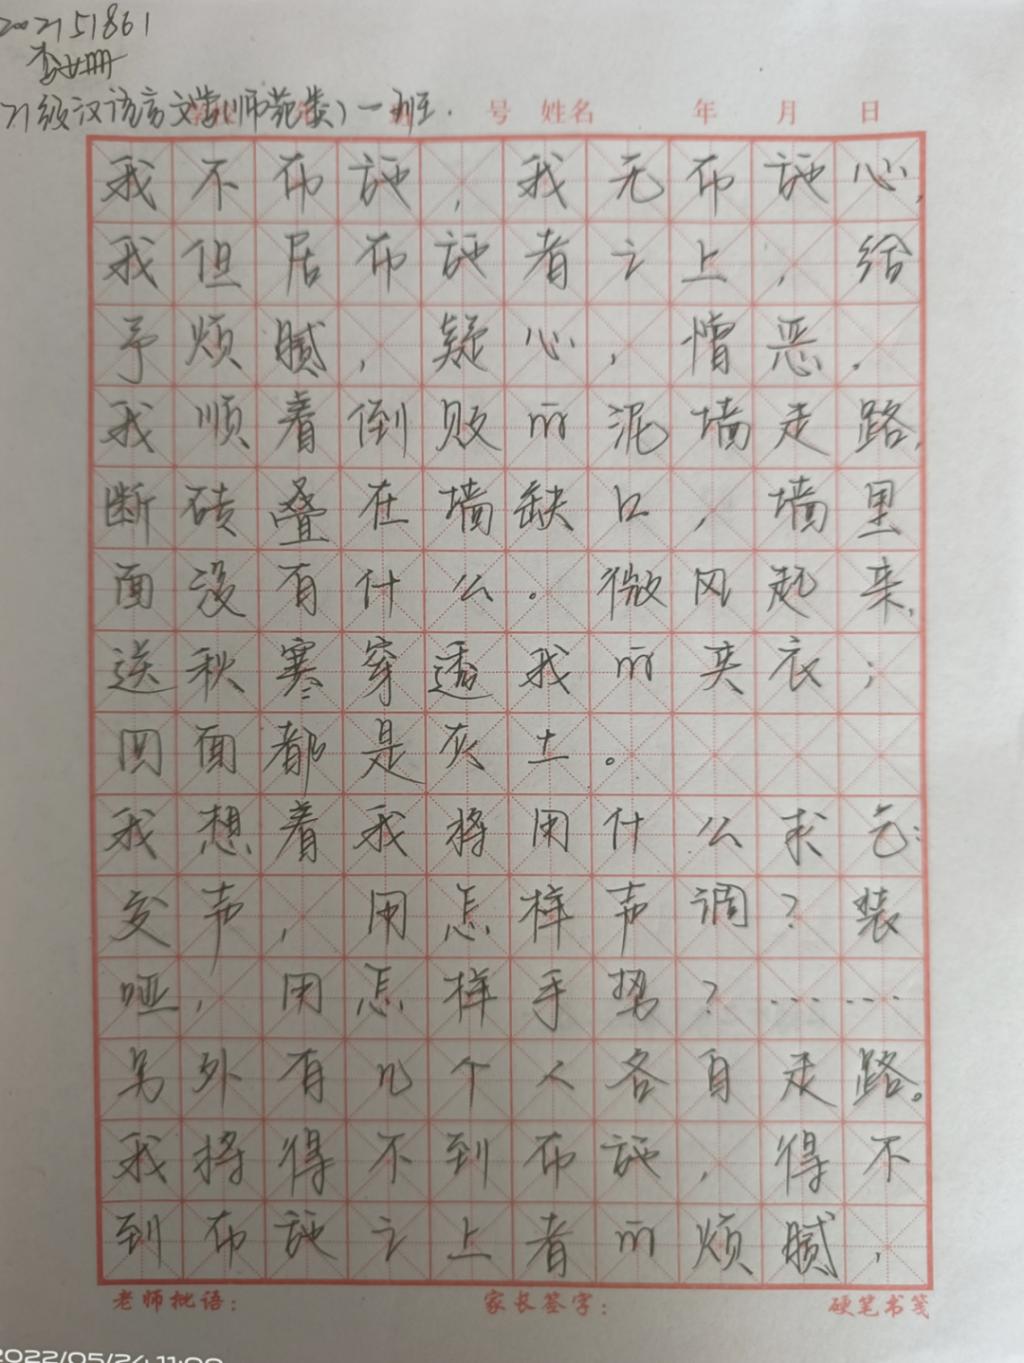 202151861
李姗
21级汉语言文学(师范类)一班.
号 姓名 年 月 日
我不布施，我无布施心，
我但居布施者之上，给
予烦腻，疑心，憎恶。
我顺着倒败的泥墙走路，
断砖叠在墙缺口，墙里
面没有什么。微风起来，
送秋寒穿透我的夹衣；
四面都是灰土。
我想着我将用什么求乞：
发声，用怎样声调？装
哑，用怎样手势？……
另外有几个人各自走路。
我将得不到布施，得不
到布施之上者的烦腻，
老师批语： 家长签字： 硬笔书笺
2022/05/24 11:00